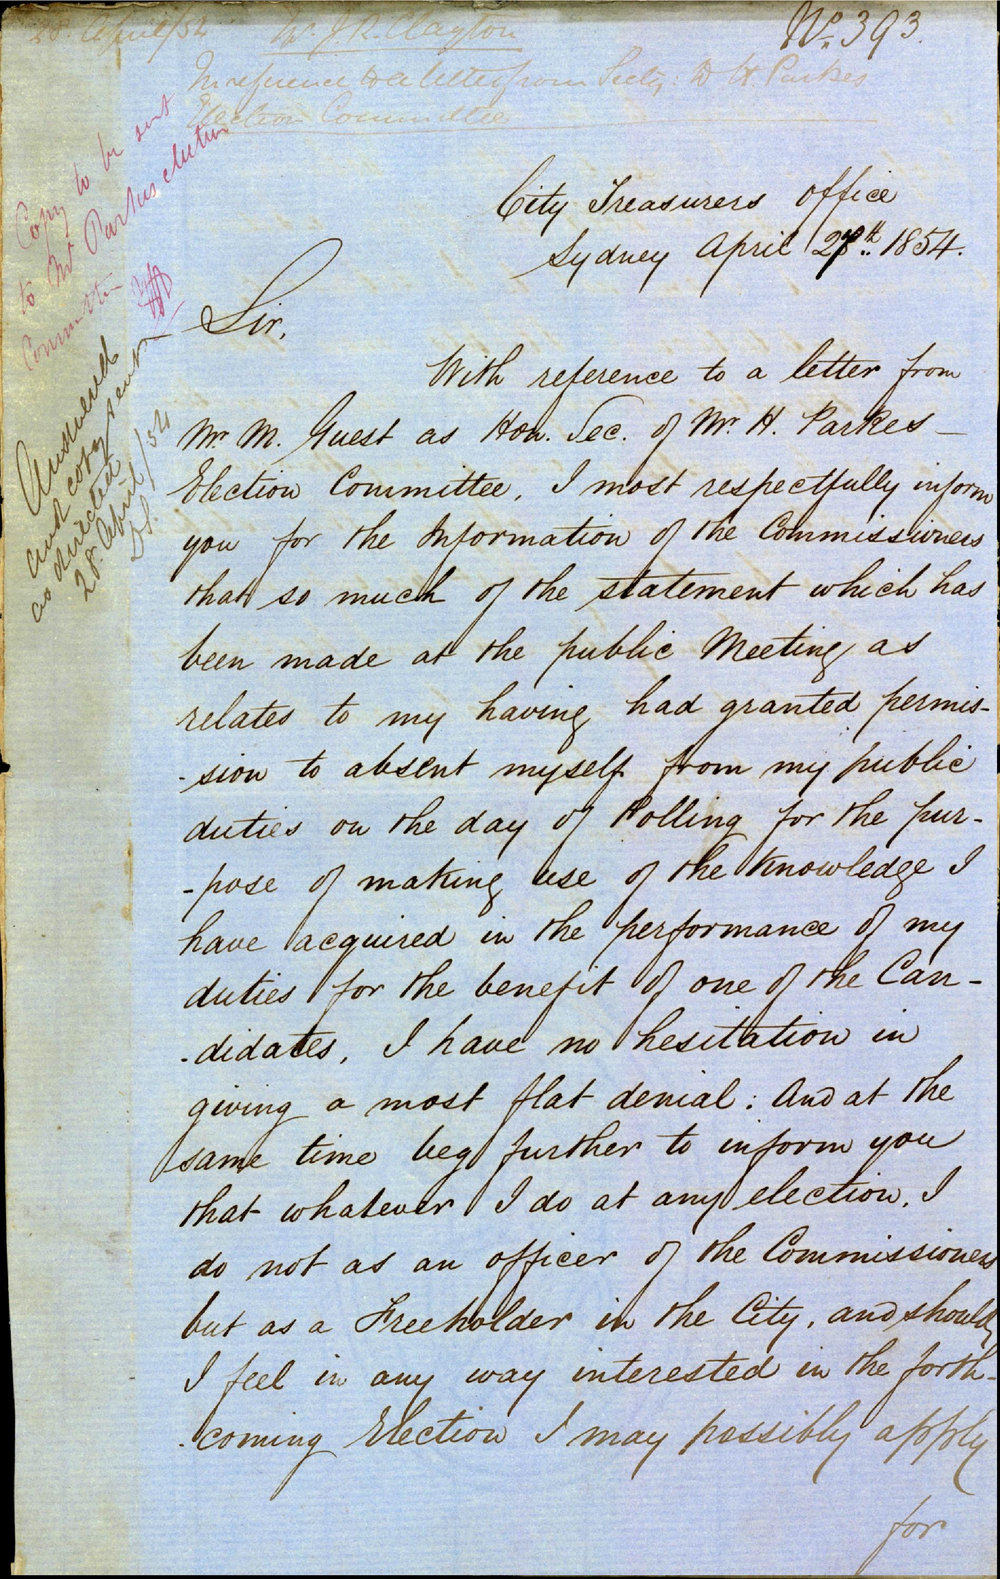 28 April/54 Mr. J. R. Clayton
No. 393.
In reference to a letter from Secty: to H. Parkes
Election Committee
Copy to be sent
to Mr Parkes election
Committee
Answered
and copy sent
as directed
28 April/54
City Treasurers Office
Sydney April 27th. 1854.
Sir,
With reference to a letter from
Mr. M. Guest as Hon. Sec. of Mr. H. Parkes
Election Committee, I most respectfully inform
you for the Information of the Commissioners
that so much of the statement which has
been made at the public Meeting as
relates to my having had granted permis-
-sion to absent myself from my public
duties on the day of Polling for the pur-
-pose of making use of the Knowledge I
have acquired in the performance of my
duties for the benefit of one of the Can-
-didates, I have no hesitation in
giving a most flat denial: And at the
same time beg further to inform you
that whatever I do at any election, I
do not as an officer of the Commissioners
but as a Freeholder in the City, and should
I feel in any way interested in the forth-
-coming Election I may possibly apply
for